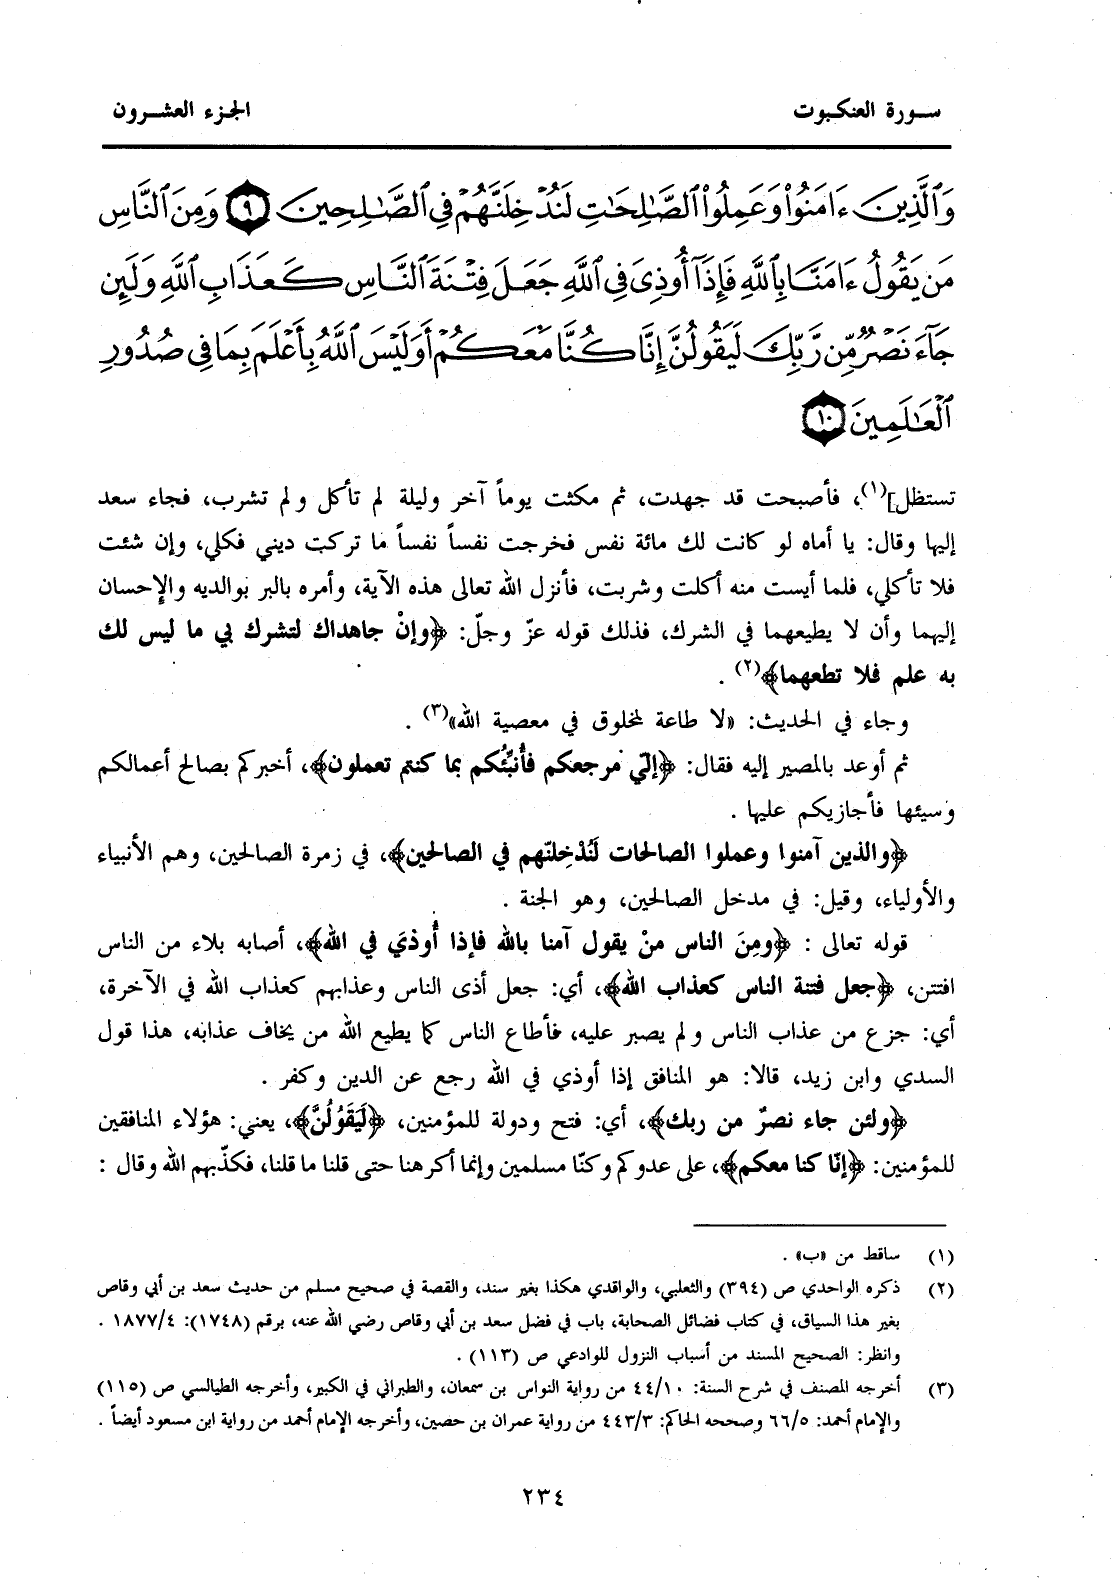 سورة العنكبوت
الجزء العشرون
وَٱلَّذِينَ ءَامَنُوا۟ وَعَمِلُوا۟ ٱلصَّـٰلِحَـٰتِ لَنُدْخِلَنَّهُمْ فِى ٱلصَّـٰلِحِينَ ٩ وَمِنَ ٱلنَّاسِ
مَن يَقُولُ ءَامَنَّا بِٱللَّهِ فَإِذَآ أُوذِىَ فِى ٱللَّهِ جَعَلَ فِتْنَةَ ٱلنَّاسِ كَعَذَابِ ٱللَّهِ وَلَئِن
جَآءَ نَصْرٌ مِّن رَّبِّكَ لَيَقُولُنَّ إِنَّا كُنَّا مَعَكُمْ أَوَلَيْسَ ٱللَّهُ بِأَعْلَمَ بِمَا فِى صُدُورِ
ٱلْعَـٰلَمِينَ ١٠
تستظل](١)، فأصبحت قد جهدت، ثم مكثت يوماً آخر وليلة لم تأكل ولم تشرب، فجاء سعد
إليها وقال: يا أماه لو كانت لك مائة نفس فخرجت نفساً نفساً ما تركت ديني فكلي، وإن شئت
فلا تأكلي، فلما أيست منه أكلت وشربت، فأنزل الله تعالى هذه الآية، وأمره بالبر بوالديه والإحسان
إليهما وأن لا يطيعهما في الشرك، فذلك قوله عزّ وجلّ: ﴿وإنْ جاهداك لتشرك بي ما ليس لك
به علم فلا تطعهما﴾(٢) .
وجاء في الحديث: «لا طاعة لمخلوق في معصية الله»(٣) .
ثم أوعد بالمصير إليه فقال: ﴿إليّ مرجعكم فأُنبِّئُكم بما كنتم تعملون﴾، أخبركم بصالح أعمالكم
وسيئها فأجازيكم عليها .
﴿والذين آمنوا وعملوا الصالحات لَنُدْخِلنّهم في الصالحين﴾، في زمرة الصالحين، وهم الأنبياء
والأولياء، وقيل: في مدخل الصالحين، وهو الجنة .
قوله تعالى : ﴿ومِنَ الناس منْ يقول آمنا بالله فإذا أُوذيَ في الله﴾، أصابه بلاء من الناس
افتتن، ﴿جعل فتنة الناس كعذاب الله﴾، أي: جعل أذى الناس وعذابهم كعذاب الله في الآخرة،
أي: جزع من عذاب الناس ولم يصبر عليه، فأطاع الناس كما يطيع الله من يخاف عذابه، هذا قول
السدي وابن زيد، قالا: هو المنافق إذا أوذي في الله رجع عن الدين وكفر .
﴿ولئن جاء نصرٌ من ربك﴾، أي: فتح ودولة للمؤمنين، ﴿لَيَقَوُلُنَّ﴾، يعني: هؤلاء المنافقين
للمؤمنين: ﴿إنّا كنا معكم﴾، على عدوكم وكنّا مسلمين وإنما أكرهنا حتى قلنا ما قلنا، فكذّبهم الله وقال :
(١) ساقط من «ب» .
(٢) ذكره الواحدي ص (٣٩٤) والثعلبي، والواقدي هكذا بغير سند، والقصة في صحيح مسلم من حديث سعد بن أبي وقاص
بغير هذا السياق، في كتاب فضائل الصحابة، باب في فضل سعد بن أبي وقاص رضي الله عنه، برقم (١٧٤٨): ١٨٧٧/٤ .
وانظر: الصحيح المسند من أسباب النزول للوادعي ص (١١٣) .
(٣) أخرجه المصنف في شرح السنة: ٤٤/١٠ من رواية النواس بن سمعان، والطبراني في الكبير، وأخرجه الطيالسي ص (١١٥)
والإمام أحمد: ٦٦/٥ وصححه الحاكم: ٤٤٣/٣ من رواية عمران بن حصين، وأخرجه الإمام أحمد من رواية ابن مسعود أيضاً .
٢٣٤